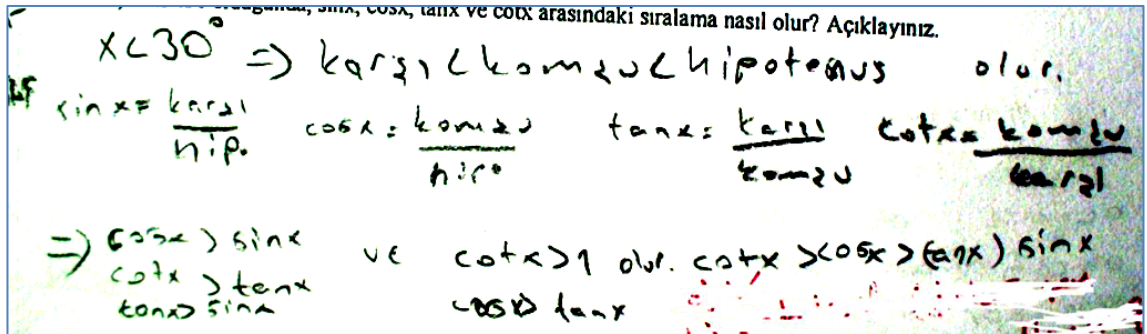 sinx, cosx, tanx ve cotx arasındaki sıralama nasıl olur? Açıklayınız.
x<30° => karşı<komşu<hipotenus olur.
sin x = karşı / hip. cosx = komşu / hip. tanx = karşı / komşu cotx = komşu / karşı
=> cosx > sinx ve cotx>1 olur. cotx >cosx > tanx > sinx
cotx > tanx cosx> tanx
tanx> sinx